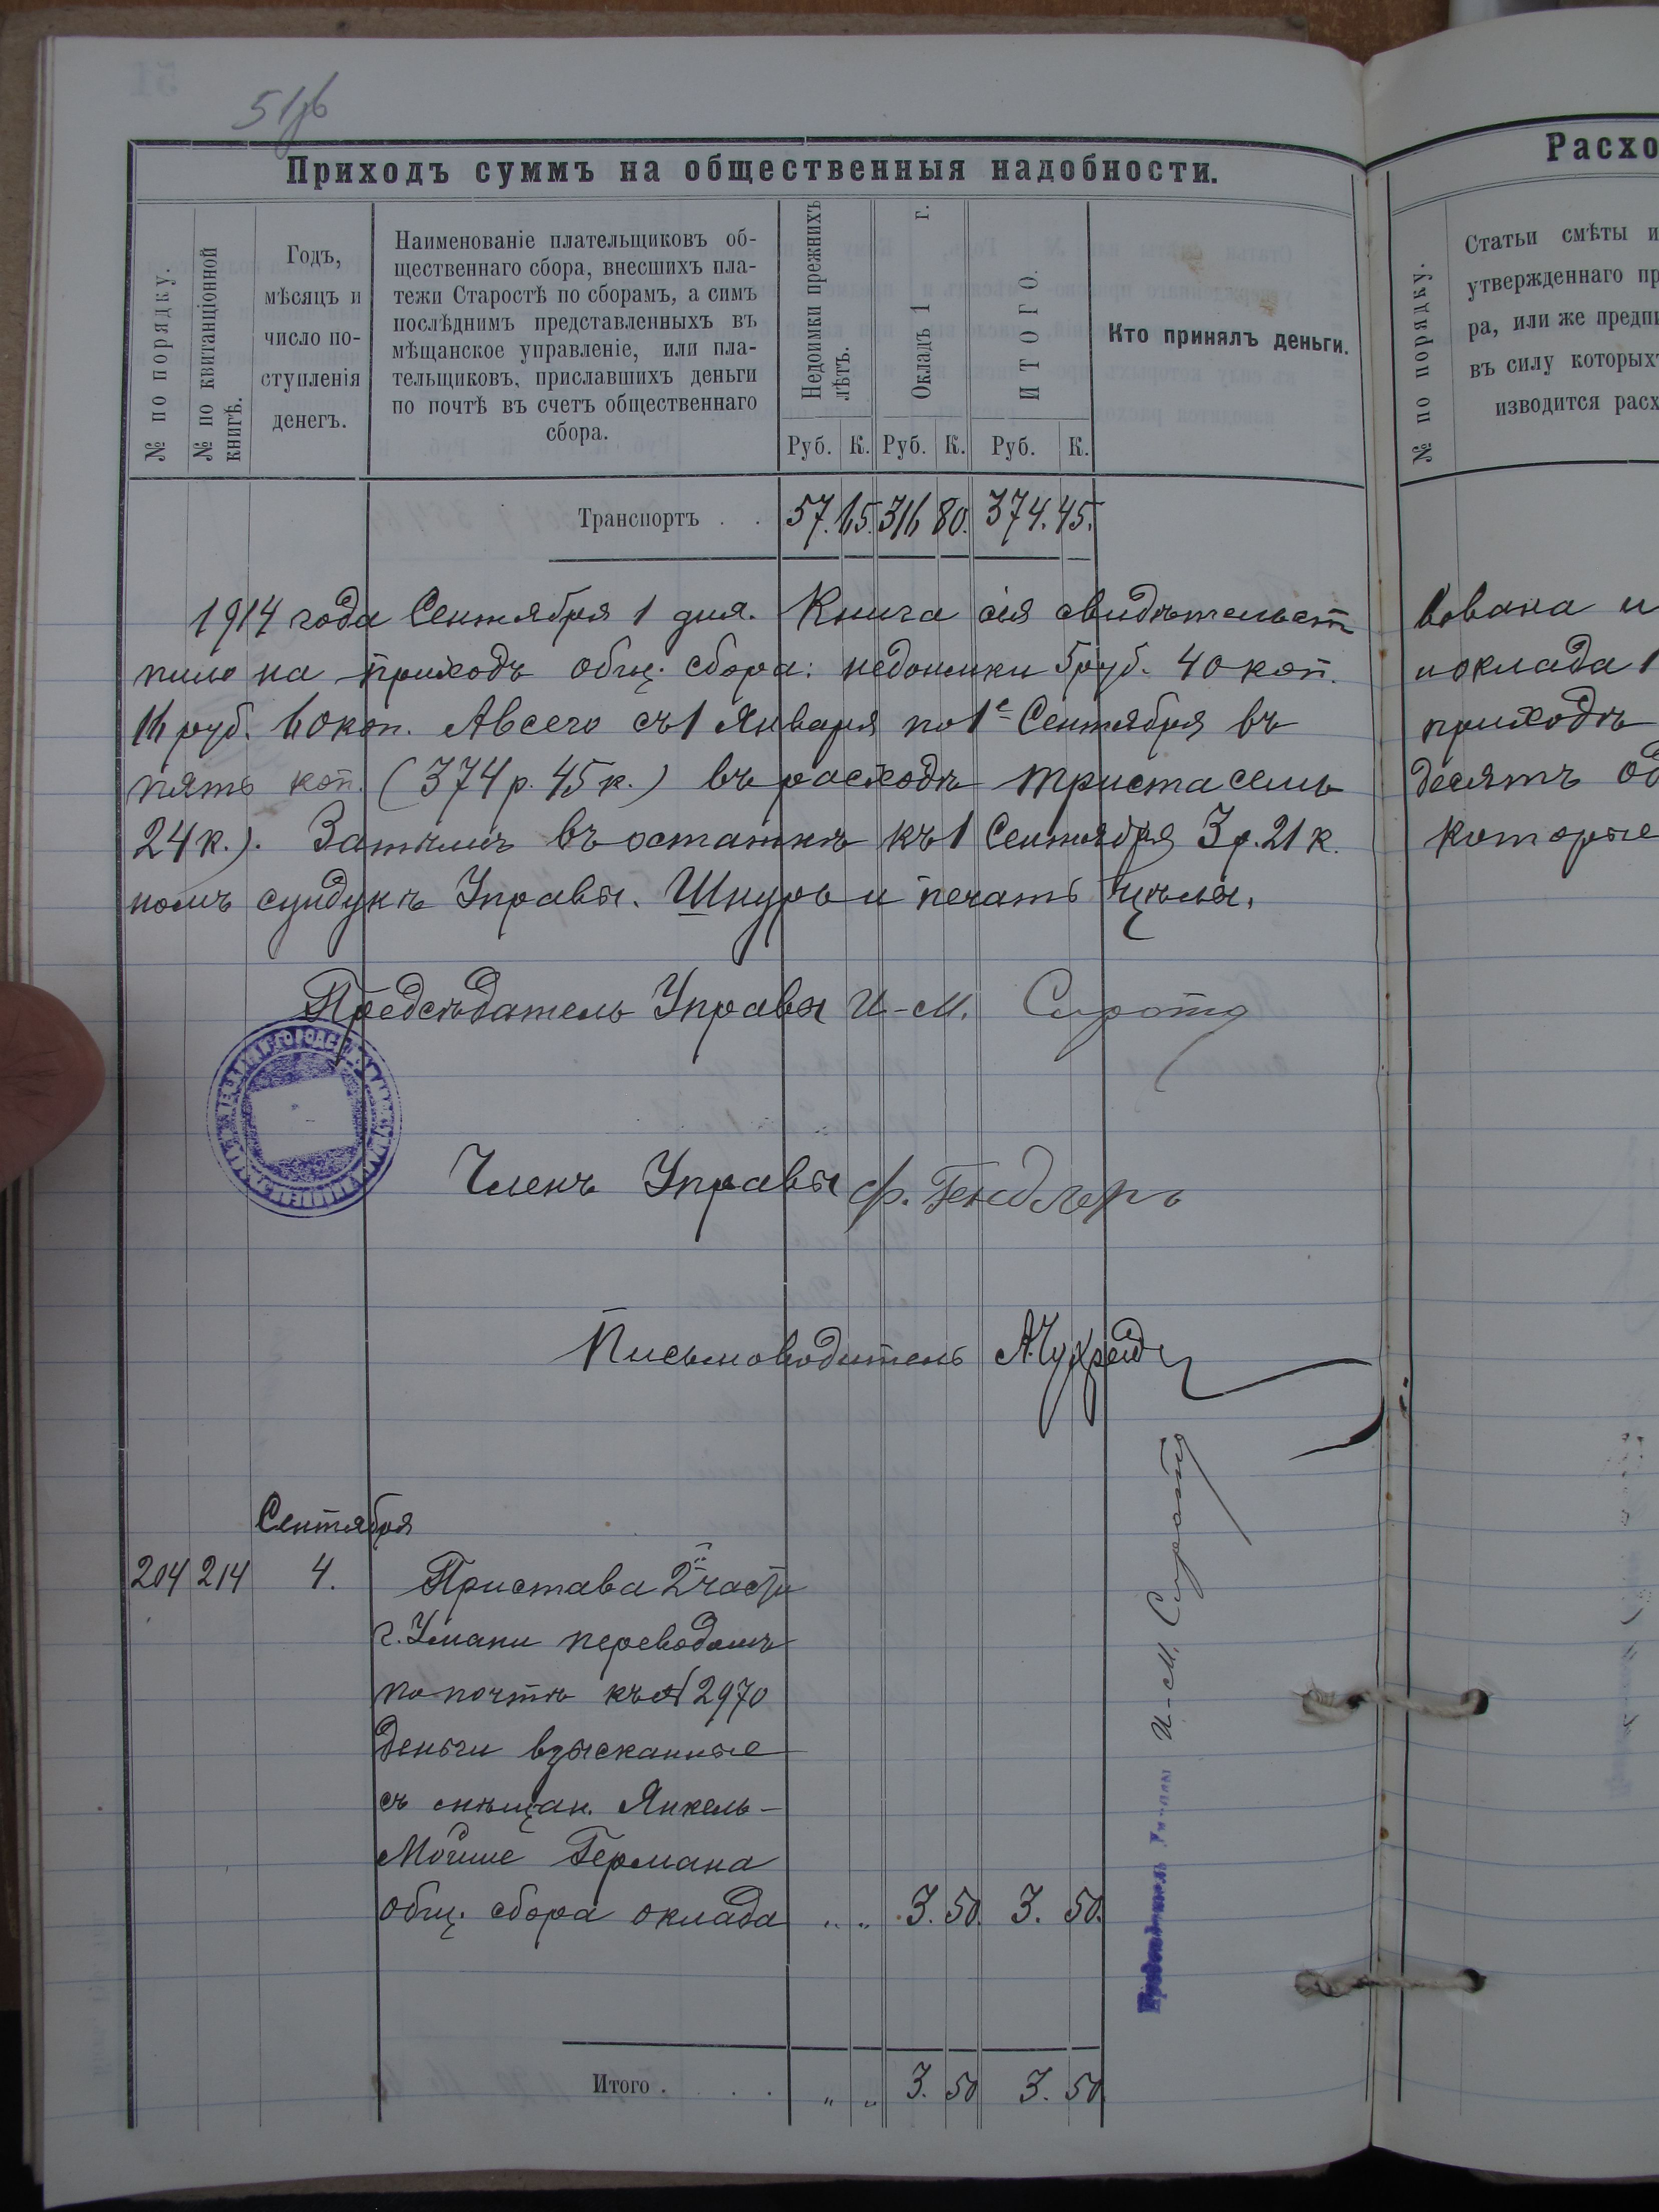 51об
Приходъ суммъ на общественныя надобности.
№ по порядку.
№ по квитанціонной книгѣ.
Годъ,
мѣсяцъ и
число по-
ступленія
денегъ.
Наименованіе плательщиковъ об-
щественнаго сбора, внесшихъ пла-
тежи Старостѣ по сборамъ, а симъ
послѣднимъ представленныхъ въ
мѣщанское управленіе, или пла-
тельщиковъ, приславшихъ деньги
по почтѣ въ счетъ общественнаго
сбора.
Недоимки прежнихъ лѣтъ.
Окладъ 1 г.
ИТОГО.
Кто принялъ деньги.
Руб. К. Руб. К. Руб. К.
Транспортъ . . 57. 65. 316 80. 374. 45.
1914 года Сентября 1 дня. Книга сія свидѣтельст
пило на приходъ общ. сбора: недоимки 5 руб. 40 коп.
16 руб. 60 коп. А всего съ 1 Января по 1е Сентября въ
пять коп. (374 р. 45 к.) въ расходѣ триста семь
24 к.). Затѣмъ въ остаткѣ къ 1 Сентября 3 р. 21 к.
номъ сундукѣ Управы. Шнуръ и печать цѣлы.
Предсѣдатель Управы И-М. Сирота
Членъ Управы Ф. Гендлеръ
Письмоводитель
Сентября
204 214 4. Пристава 2й части
г. Умани переводомъ
по почтѣ къ № 2970
деньги взысканные
съ мѣщан. Янкель-
Мошие Германа
общ. сбора оклада „ „ 3. 50. 3. 50.
Предсѣдатель Управы И-М. Сирота
Итого . . . „ „ 3. 50 3. 50
Расхо
№ по порядку.
Статьи смѣты и
утвержденнаго пр
ра, или же предпи
въ силу которых
изводится расх
вована и
и оклада 1
приходѣ
десятъ од
которые